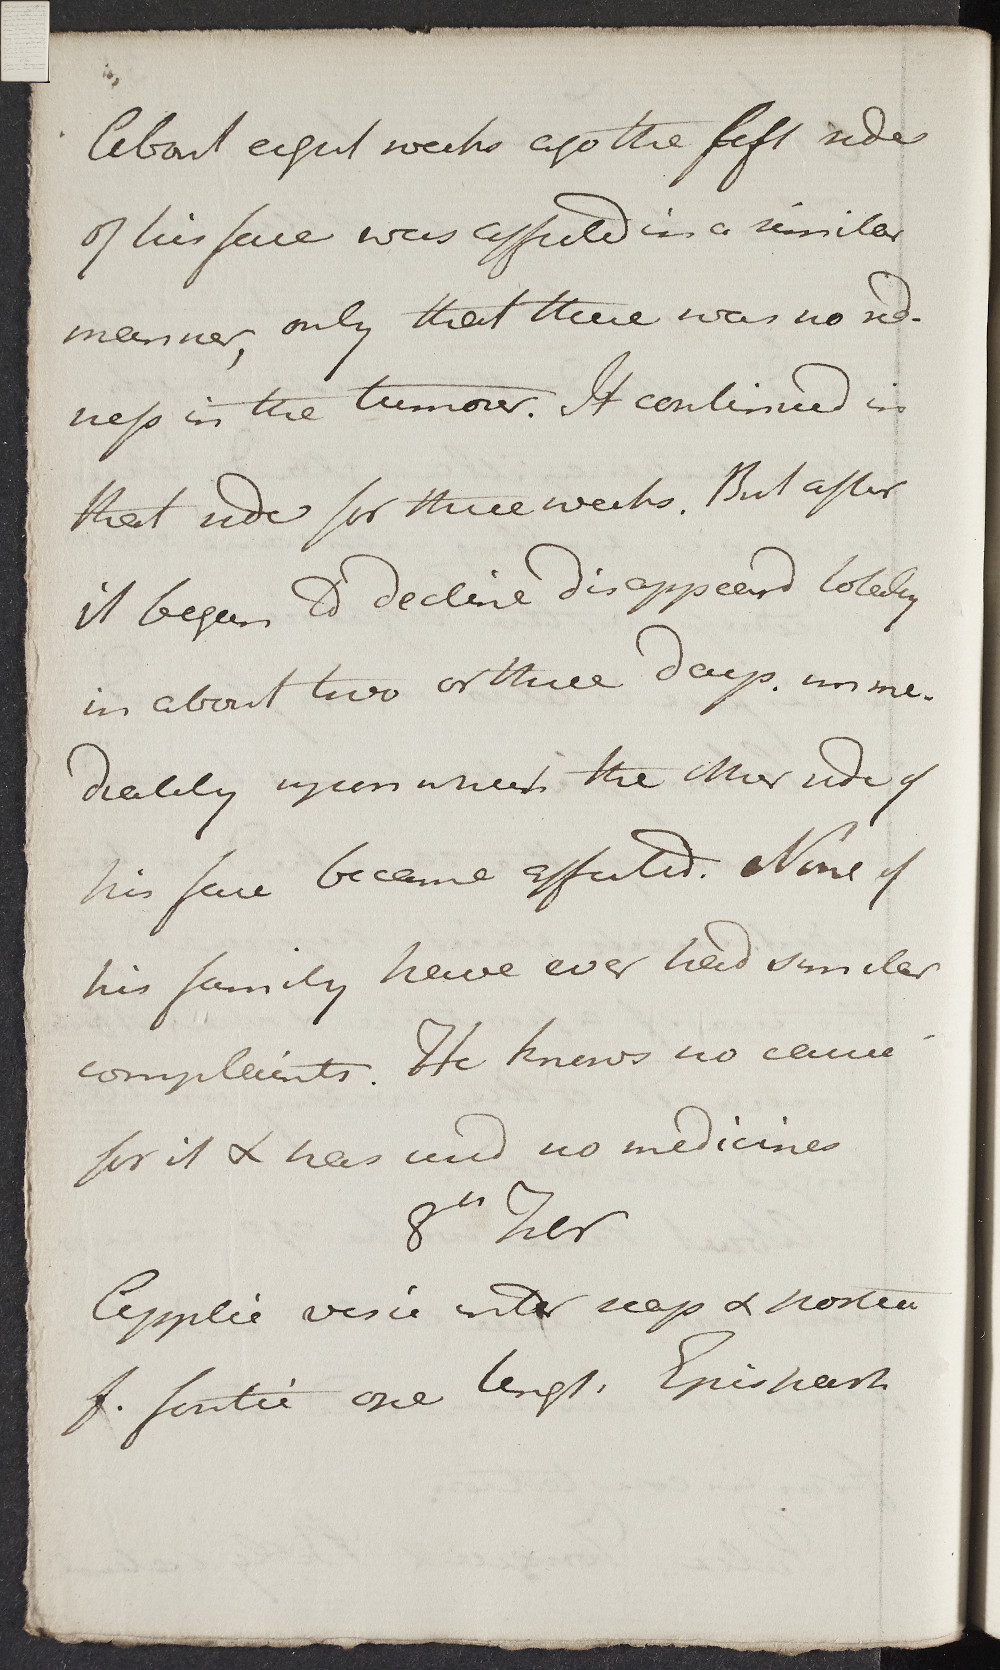 About eight weeks ago the left side
of his face was affected in a similar
manner, only that there was no red-
ness in the tumour. It continued in
that side for three weeks. But after
it began to decline disappeard totally
in about two or three days. imme-
diately upon which the other side of
his face became affected. None of
his family have ever had similar
complaints. He knows no cause
for it & has used no medicines
8th Febr
Applic vesic inter &
f. one lengt. Epispast